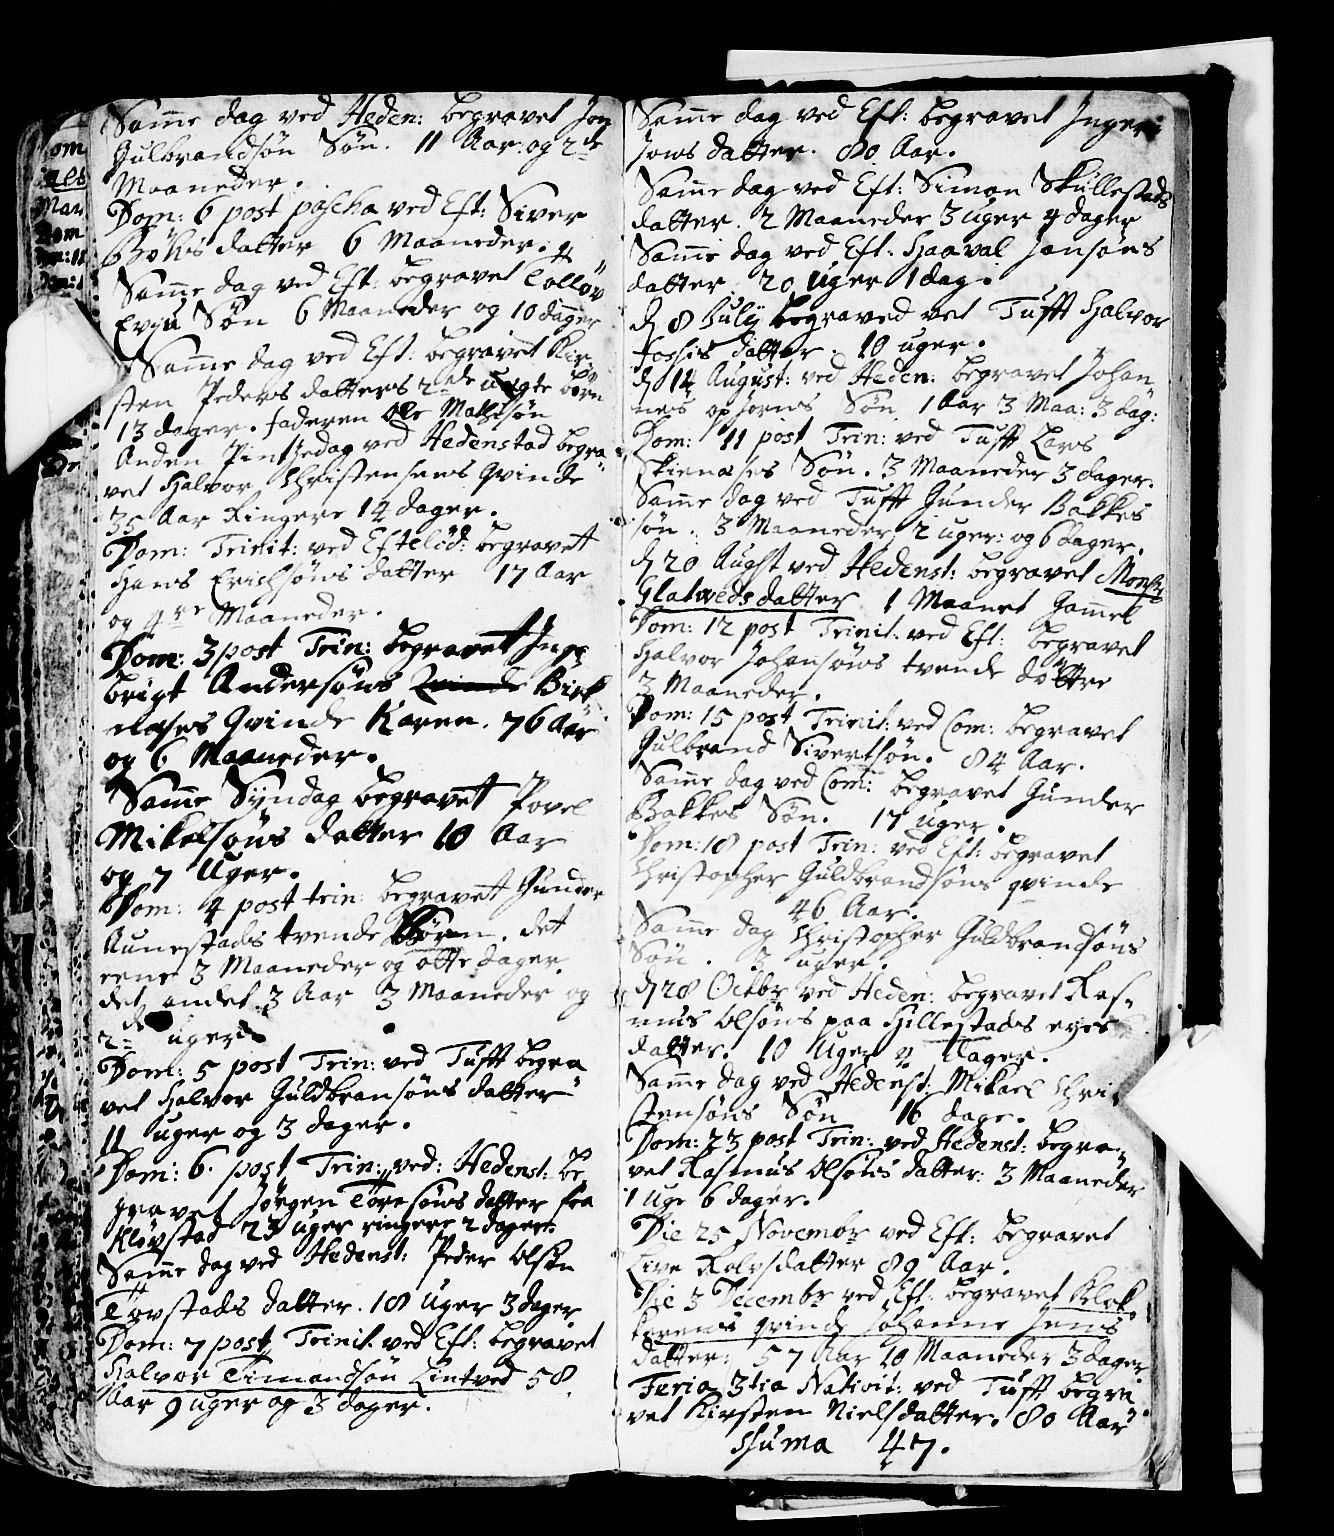 Same dag ved Heden: begravet Jon
Gulbrandsøn Søn. 11 Aar og 2de
Maaneder.
Dom: 6 post pascha ved Eft: Siver
Bøhls datter 6 Maaneder.
Same dag ved Eft: begravet Tolløv
Evju Søn 6 Maaneder og 10 dager
Same dag ved Eft: begravet Kir-
sten Peders datters 2de uegte børn
13 dager. faderen Ole Mathisøn
Anden Pintzedag ved Hedenstad begra-
vet Halvor Christensens Qvinde
35 Aar Ringere 14 dager.
Dom: Trinit: ved Eftelöd: begravett
Hans Erichsøns datter 17 Aar
og 4re Maaneder.
Dom: 3 post Trin: begravett Inge
brigt Andersøns Birk
næses Qvinde Karen. 76 Aar
og 6 Maaneder.
Same Syndag begravett Povel
Mikelsøns datter 10 Aar
og 7 Uger.
Dom: 4 post trin: begravett Gunder
Aunestads tvende Børen. det
eene 3 Maaneder og otte dager.
det andet 3 Aar 3 Maaneder og
2de uger
Dom: 5 post Trin: ved Tufft begra
vet Halvor Guldbransøns datter
11 uger og 3 dager.
Dom: 6. post Trin: ved: Hedenst: be
gravet Jørgen Toresøns datter fra
Kløvstad 23 uger ringere 2 dager.
Same dag ved Hedenst: Peder Olsøn
Tovstads datter. 18 Uger 3 dager
Dom: 7 post Trinit. ved Eft: begravet
Halvor Simandsøn Lintved 58
Aar 9 uger og 3 dager.
Same dag ved Eft: begravet Inger
Jons datter. 80 Aar.
Same dag ved Eft: Simon Skullestads
datter. 2 Maaneder 3 uger 4 dager
Same dag ved Eft. Haaval Jonsøns
datter. 20 Uger 1 dag.
d 8 July begraved vet Tufft Halvor
Fossis datter. 10 uger.
d 14 August: ved Heden: begravet Johan
nes Søn 1 Aar 3 Maa: 3 dag:
Dom: 11 post Trin: ved Tufft Lars
Skienæses Søn. 3 Maaneder 3 dager.
Same dag ved Tufft Gunder Bakkes
søn. 3 Maaneder 2 uger: og 6 dager.
d 20 Augst ved Hedenst: begravet Monsr
Glatveds datter 1 Maanet Gamel
Dom: 12 post Trinit. ved Eft: begravet
Halvor Johansøns tvende døttre
3 Maaneder.
Dom: 15 post Trinit: ved Com: begravet
Gulbrand Sivertsøn. 84 Aar.
Same dag ved Com: begravet Gunder
Bakkes Søn. 17 uger.
Dom: 18 post Trin: ved Eft: begravet
Christopher Guldbrandsøns qvinde
46 Aar.
Same dag Christopher Guldbrandsøns
Søn. 3 uger.
d 28 Octbr ved Heden: begravet Ras-
mus Olsøns paa Hillestads eyes
datter. 10 Uger 4 Dager.
Same dag ved Hedenst: Mikael Chri
stensøns Søn 16 dage.
Dom: 23 post Trin: ved Hedenst: begra-
vet Rasmus Olsøns datter: 3 Maaneder
1 Uge 6 dager.
Die 25 Novembr ved Eft: begravet
Live Rolvsdatter 89 Aar.
Die 3 Decembr ved Eft: begravet Klok-
kerens qvinde Johanne Jens
datter: 57 Aar 10 Maaneder 3 dager
Feria 3tia Nativit: ved Tufft begra
vet Kirsten Nielsdatter. 80 Aar
Suma 47.